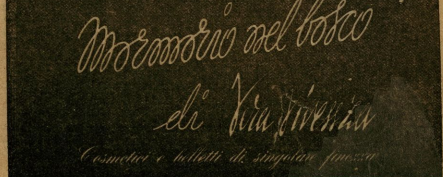 Mormorio nel bosco
di
Cosmetici e belletti di singolare finezza